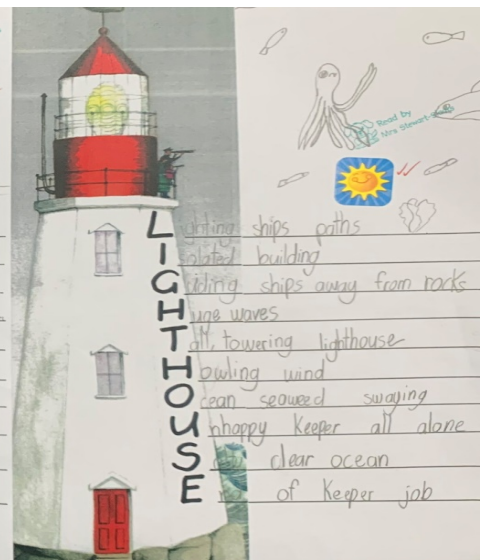 Read by
Mrs Stewart
Lighting ships paths
Isolated building
Guiding ships away from rocks
Huge waves
Tall, towering lighthouse
Howling wind
Ocean seaweed swaying
Unhappy Keeper all alone
S clear ocean
E of Keeper job